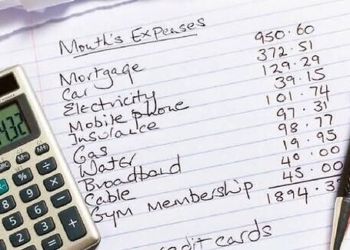 Month's Expenses
Mortgage 950.60
Car 372.51
Electricity 129.29
Mobile phone 39.15
Insurance 101.74
Gas 97.31
Water 98.77
Broadband 19.95
Cable 40.00
Gym Membership 45.00
1894.3
redit cards
432